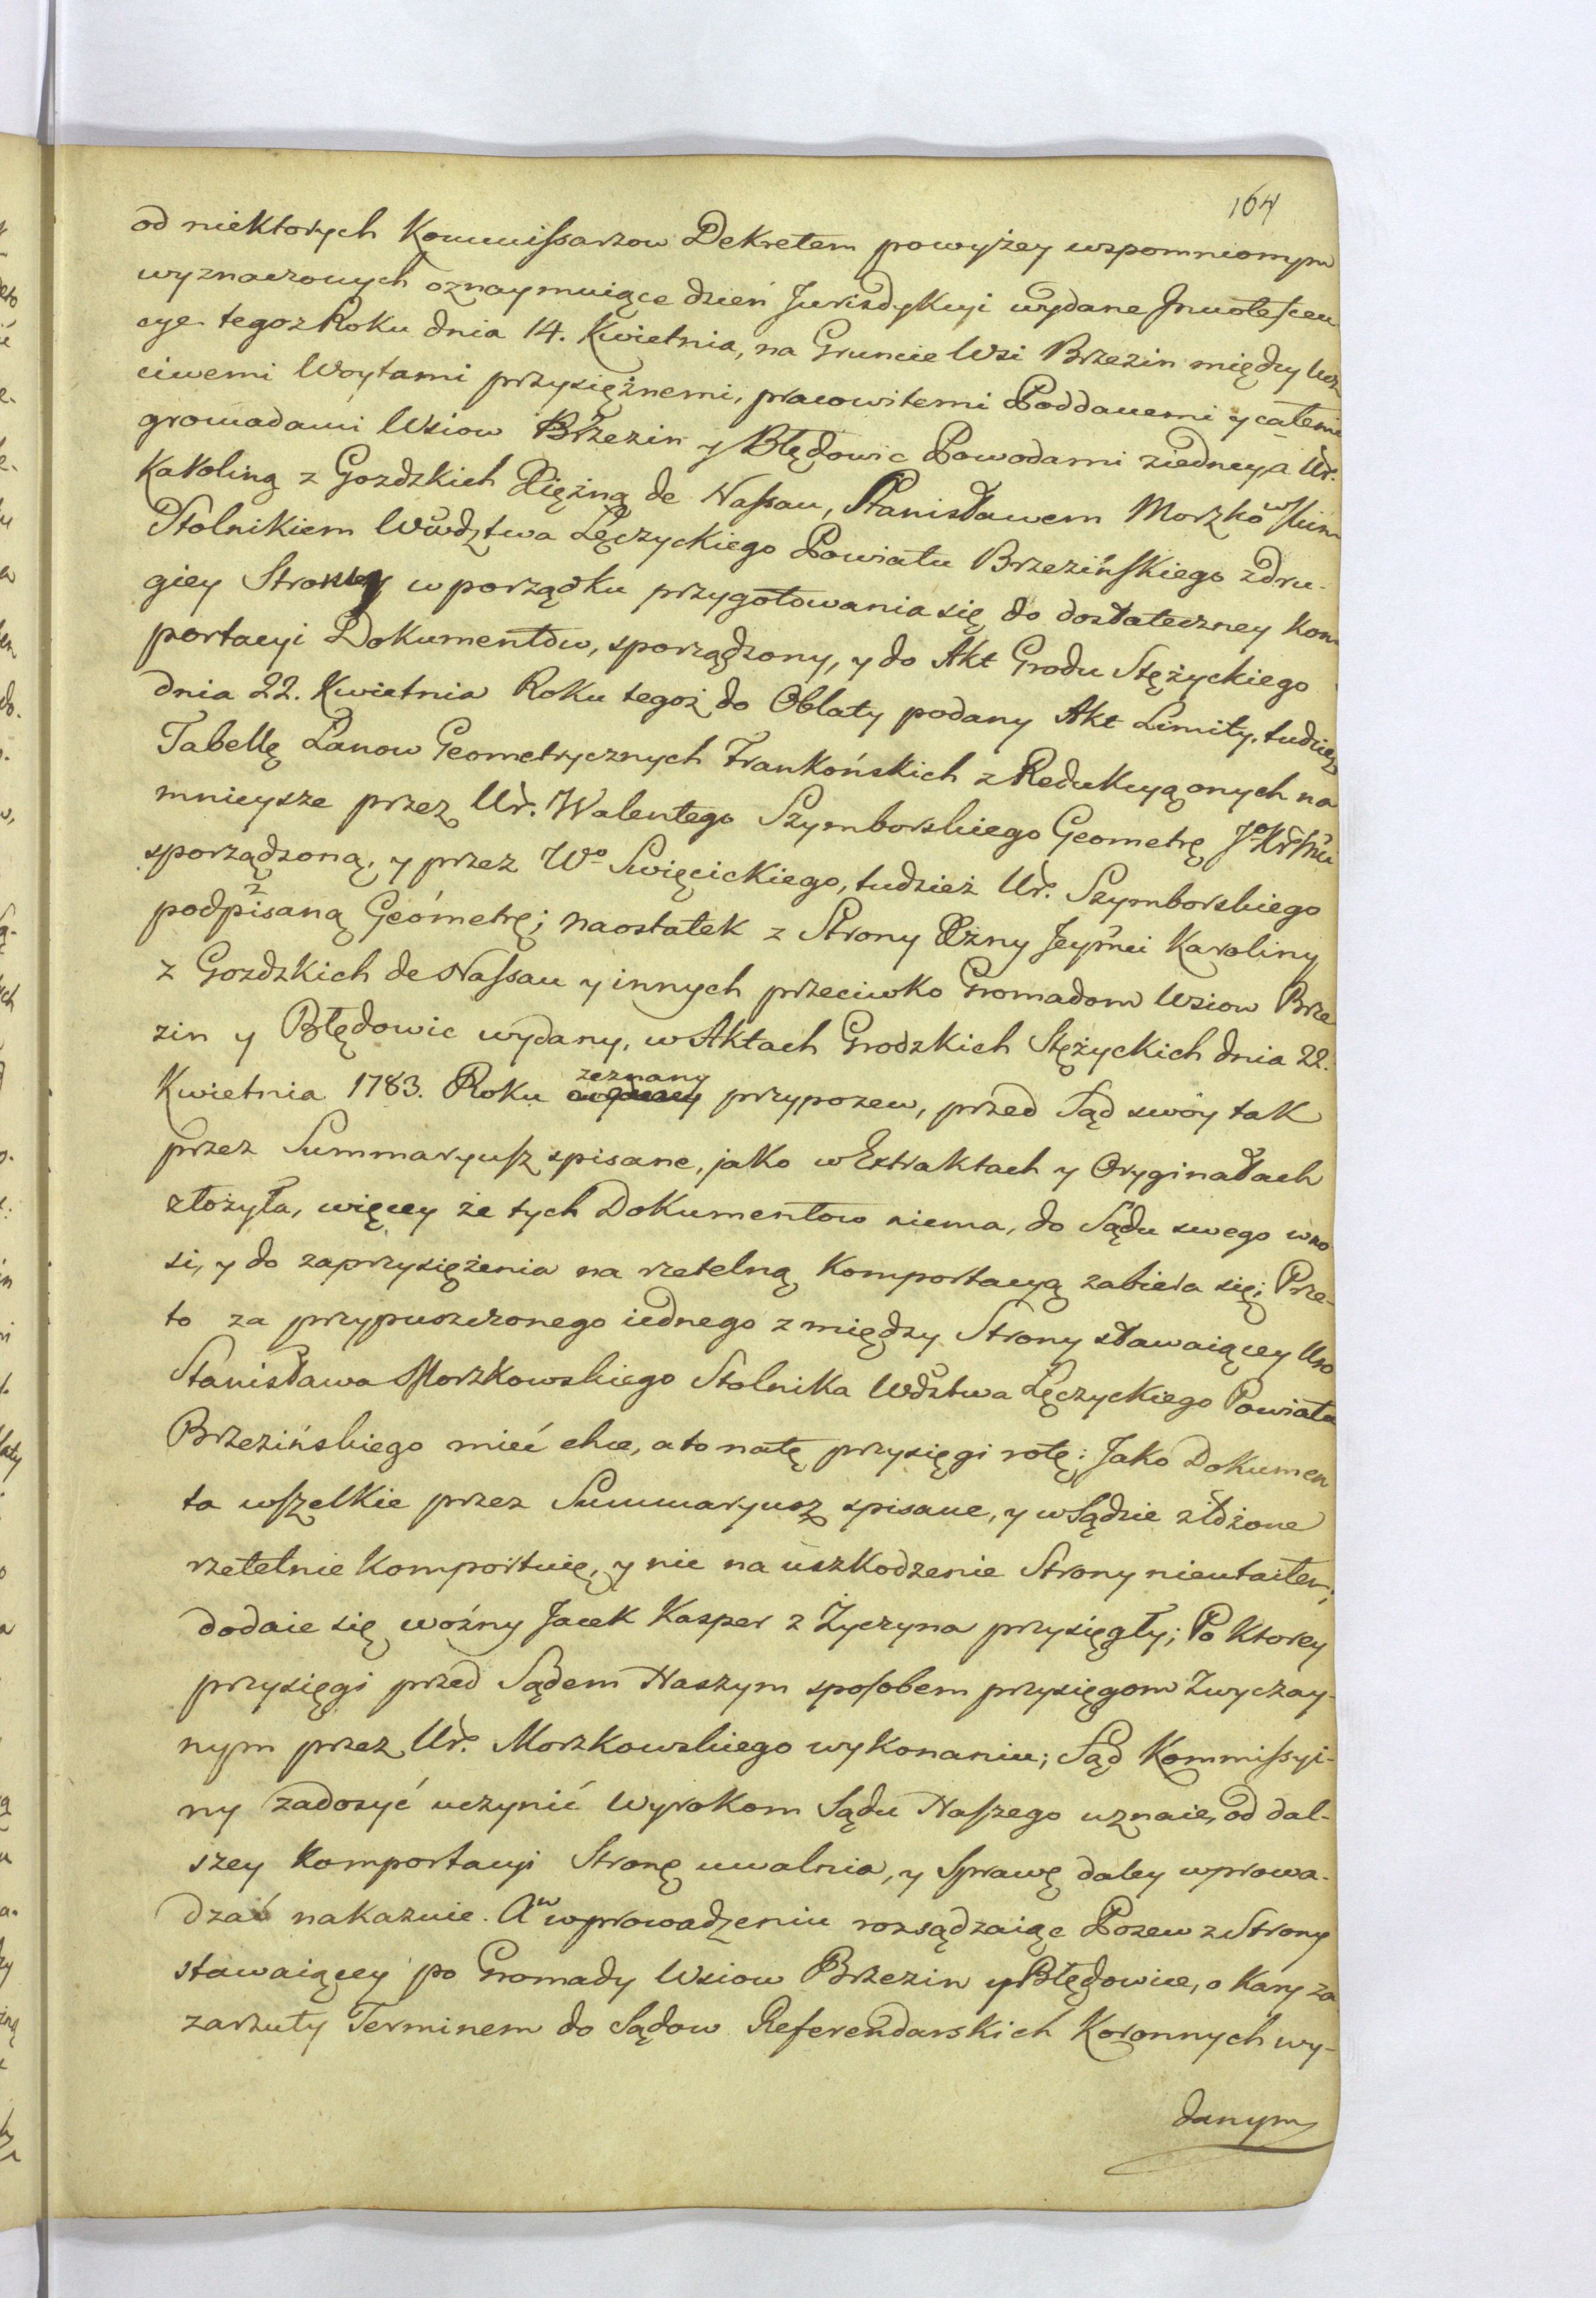 164
od niektorych Kommissarzow Dekretem powyżey wspomnionym
wyznaczonych oznaymuiące dzień Jurisdykcyi wydane Jnnotescen
cye tegoz Roku dnia 14. Kwietnia, na Gruncie Wsi Brzezin między Ucz
ciwemi Woytami przysiężnemi, pracowitemi Poddanemi y całemi
gromadami Wsiow Brzezin y Błędowic Powodami ziedney a Ur.
Karoliną z Gozdzkich Xiężną de Nassau, Stanisławem Morzkowskim
Stolnikiem Wwdztwa Łęczyckiego Powiatu Brzezińskiego zdru-
giey Strony w porządku przygotowania się do dostateczney kom
portacyi Dokumentów, sporządzony, y do Akt Grodu Stężyckiego
dnia 22. Kwietnia Roku tegoż do Oblaty podany Akt Limity, tudziez
Tabellę Łanow Geometrycznych Frankońskich z Redukcyą onych na
mnieysze przez Ur. Walentego Szymborskiego Geometrę
sporządzoną, y przez Wo Swięcickiego, tudzież Ur. Szymborskiego
podpisaną Geometrę; naostatek z Strony Xżny Jeymci Karoliny
z Gozdzkich de Nassau y innych przeciwko Gromadom Wsiow Brze
zin y Błędowic wydany, w Aktach Grodzkich Stężyckich dnia 22.
Kwietnia 1783. Roku zeznany przypozew, przed Sąd swóy tak
przez Summaryusz spisane, jako w Extraktach y Oryginałach
złożyła, więcey że tych Dokumentow niema, do Sądu swego wno
si, y do zaprzysiężenia na rzetelną Komportacyą zabiera się; Prze-
to za przypuszczonego iednego z między Strony stawaiącey Uro
Stanisława Morzkowskiego Stolnika Wdztwa Łęczyckiego Powiatu
Brzezińskiego mieć chce, a to natę przysięgi rotę: Jako Dokumen
ta wszelkie przez Summaryusz spisane, y w Sądzie złożone
rzetelnie komportuię, y nic na uszkodzenie Strony nieutaiłem,
dodaie się woźny Jacek Kasper z Życzyna przysięgły; Po ktorey
przysięgi przed Sądem Naszym sposobem przysięgom Zwyczay-
nym przez Ur. Morzkowskiego wykonaniu; Sąd Kommissyi-
ny zadosyć uczynić Wyrokom Sądu Naszego uznaie, od dal-
szey komportacyi Stronę uwalnia, y Sprawę daley wprowa-
dzać nakazuie. A w wprowadzeniu rozsądzaiąc Pozew z Strony
stawaiącey po Gromady Wsiow Brzezin y Błędowice, o Kary za
zarzuty Terminem do Sądow Referendarskich Koronnych wy-
danym